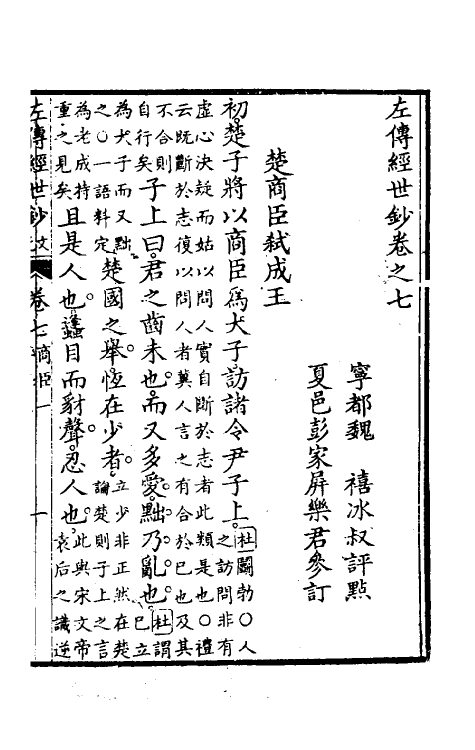 左傳經世鈔卷之七
寧都魏　禧冰叔評點
夏邑彭家屏樂君參訂
楚商臣弒成王
初楚子將以商臣為大子訪諸令尹子上。杜鬬勃〇人之訪問非有
虛心決疑而姑以問人實自斷於志者此類是也〇禮云既斷於志復以問人者冀人言之有合於巳也及其
不合則自行矣子上曰君之齒未也。而又多愛。黜乃亂也。杜謂巳立
為大子而又黜之〇一語料定楚國之舉。恆在少者。立少非正然在楚論楚則子上之言
為老成持重之見矣且是人也。蠭目而豺聲。忍人也。此與宋文帝袁后之識逆
左傳經世鈔 文 卷七商臣 一